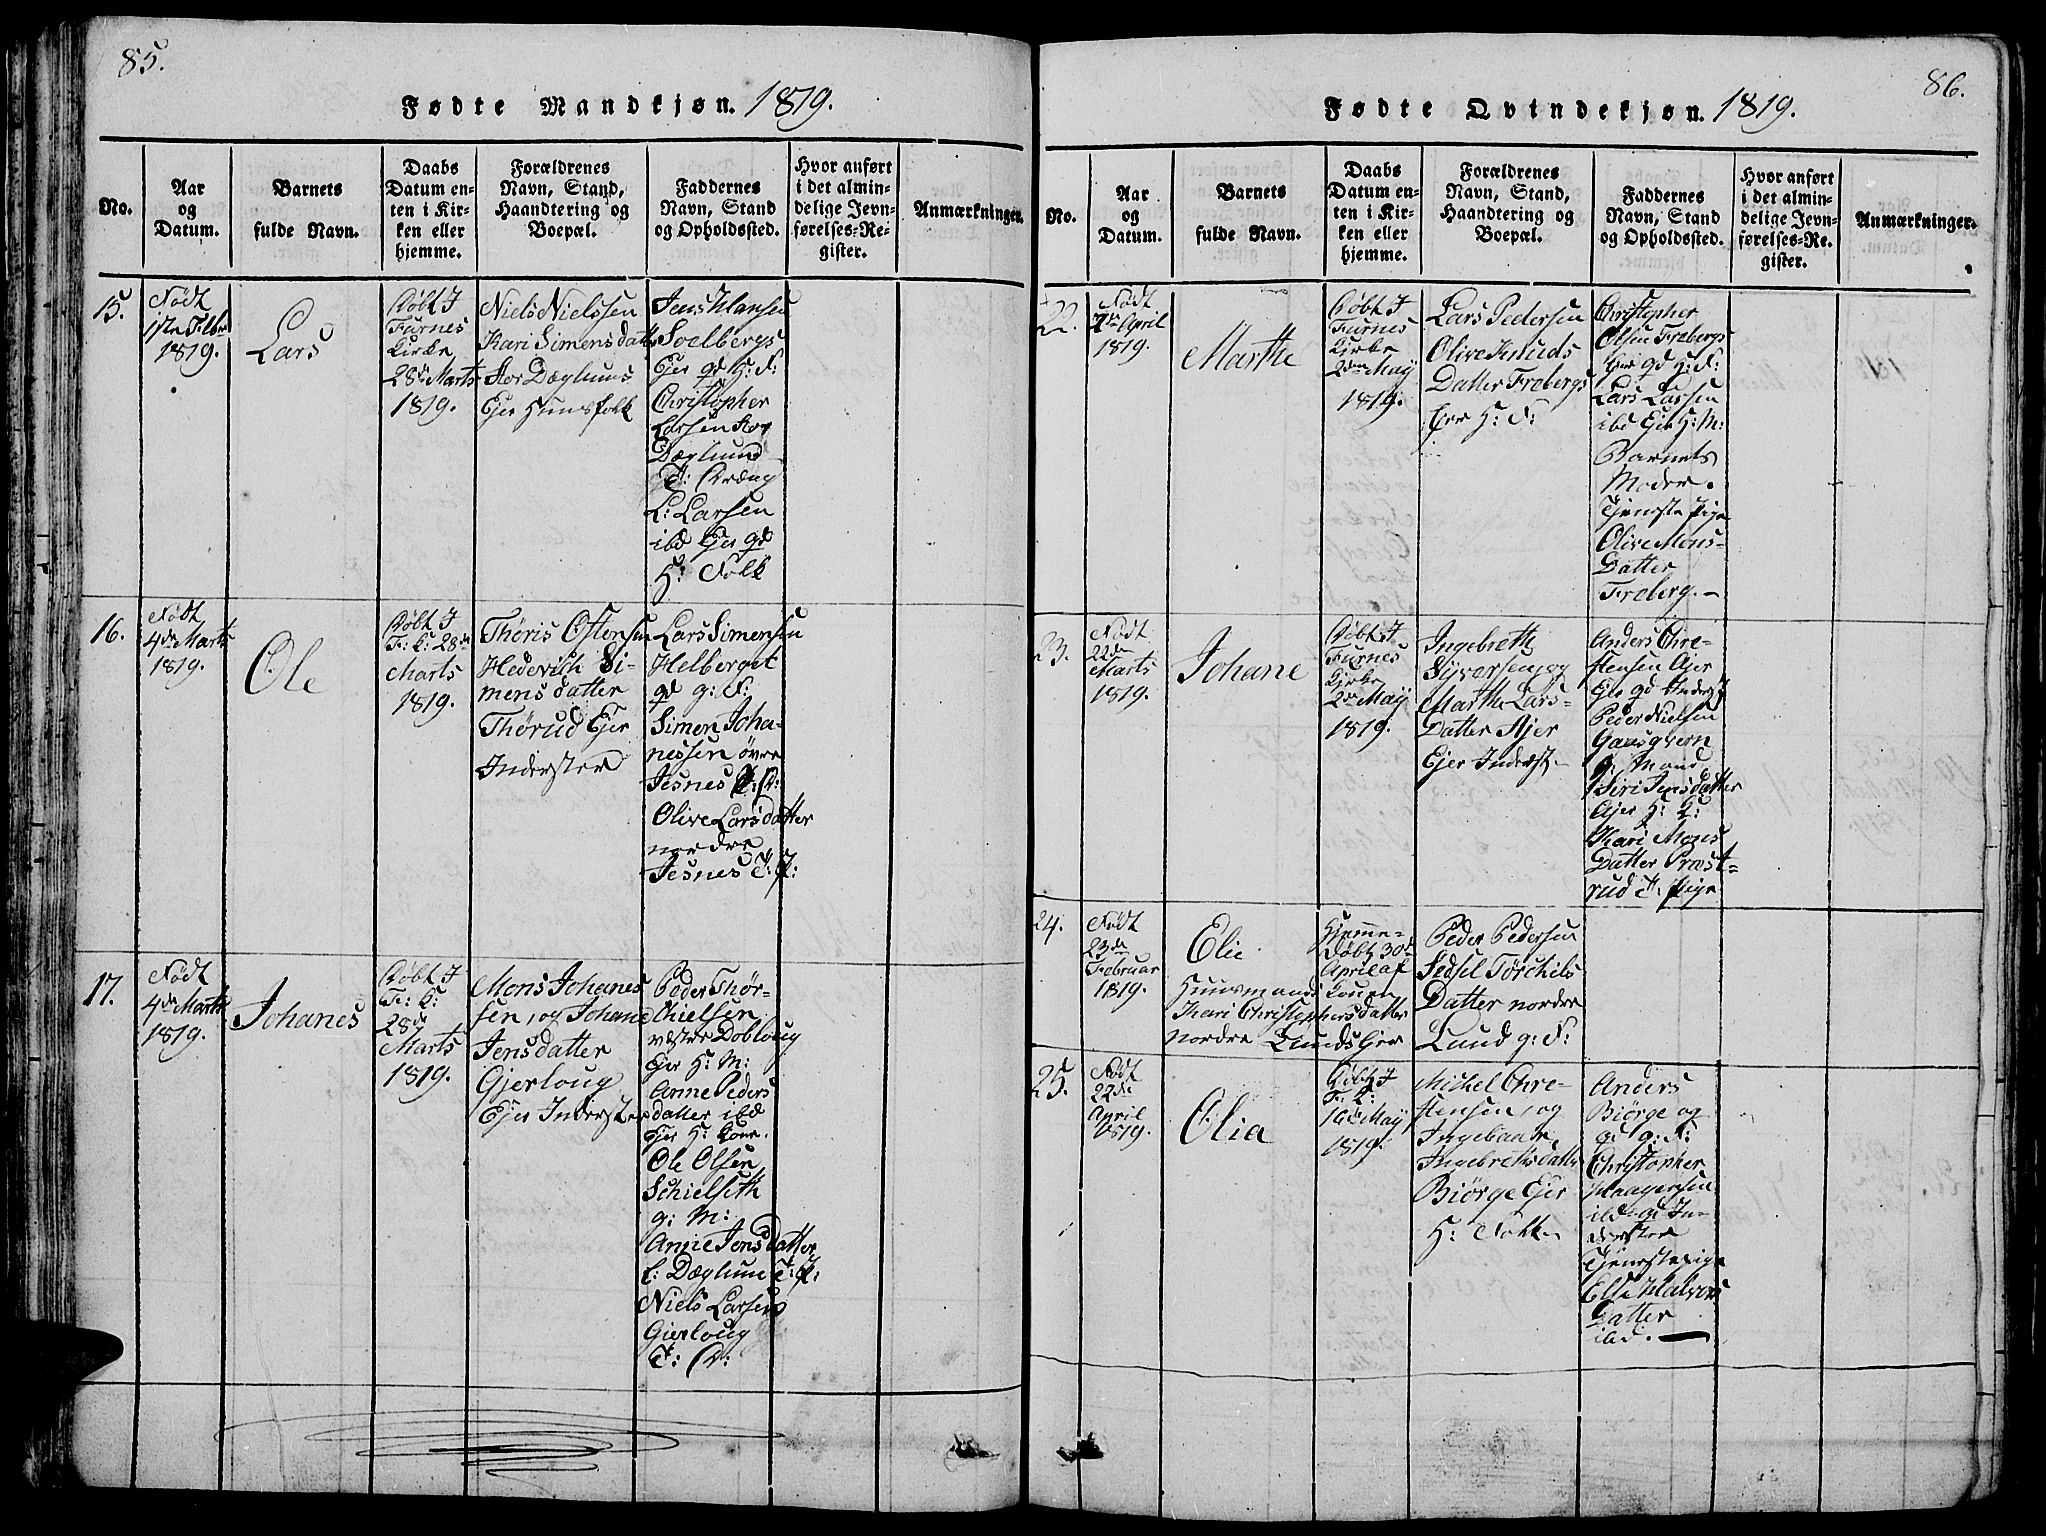 85.
Fødte Mandkjøn. 1819.
No.
Aar
og
Datum.
Barnets
fulde Navn.
Daabs
Datum en-
ten i Kir-
ken eller
hjemme.
Forældrenes
Navn, Stand,
Haandtering og
Boepæl.
Faddernes
Navn, Stand
og Opholdssted.
Hvor anført
i det almin-
delige Jevn-
førelses-Re-
gister.
Anmærkninger.
15.
Født
1819.
Lars
Døbt I
Furnes
Kirke
28de Marts
1819.
Niels Nielssen
Kari Simensdatter
Stor Dæglums
Ejer Huusfolk
Jens Hansen
Soelbergs
Ejer gd H: F:
Christopher
Larsen Stor
Dæglund
T: Dræng
L: Larsen
ibd Ejer gd
H: Folk
16.
Født
4de Marts
1819.
Ole
Døbt I
F: K: 28de
Marts
1819.
Thøris Ostensen
Hedevish Si-
mensdatter
Thørud Ejer
Inderster
Lars Simensen
Helberget
gd g: F:
Simen Joha-
nessen øvre
Jesnes T: D:
Olive Larsdatter
nordre
Jesnes T: P:
17.
Født
4de Marts
1819.
Johanes
Døbt I
F: K:
28de
Marts
1819.
Mons Johanes-
sen, og Johane
Jensdatter
Gjerloug
Ejer Inderster
Peder Thør-
chielsen
vestre Dobloug
Ejer H: M:
Anne Peders
datter ibd
Ejer H: Kone.
Ole Olsen
Schielseth
g: M:
Anne Jensdatter
l: Dæglum T: P:
Niels Larsen
Gierloug
T: D:
86.
Fødte Qvindekjøn. 1819.
No.
Aar
og
Datum.
Barnets
fulde Navn.
Daabs
Datum en-
ten i Kir-
ken eller
hjemme.
Forældrenes
Navn, Stand,
Haandtering og
Boepæl.
Faddernes
Navn, Stand
og Opholdssted.
Hvor anført
i det almin-
delige Jevn-
førelses-Re-
gister.
Anmærkninger.
22.
Født
April
1819.
Marthe
Døbt I
Furnes
Kirke
2den May
1819.
Lars Pedersen
Olive Knuds
Datter Frobergs
Ejer H: F:
Christopher
Olsen Frobergs
Ejer gd H: F:
Lars Larsen
ibd Ejer H: M:
Barnets
Moder.
Tjeneste Pige
Olive Mons-
Datter
Froberg.-
23.
Født
22de
Marts
1819.
Johane
Døbt I
Furnes
Kirke
2den May
1819.
Ingebreth
Syversen og
Marthe Lars-
Datter Ajer
Ejer Inderst.-
Anders Chre-
stensen Ajer
Ejer gd Inderst
Peder Nielsen
Gaasqvern
g: Mand
Siri Jensdatter
Ajer H: K:
Kari Mons
Datter Præst-
rud T: Pige
24.
Født
23de
Februar
1819.
Elie
Huusmands Konen
Kari Christophersdatter
nordre Lunds Ejer
Hjemme-
Døbt 30de
April af
Peder Pedersen
Sidsel Torchils
Datter nordre
Lund g: F:
25.
Født
22de
April
1819.
Olia
Døbt I
F: K:
16de May
1819.
Michel Chre-
stensen, og
Ingebaar
Ingebrethsdatter
Biørge Ejer
H: Folk
Anders
Biørge og
gd g: F:
Christopher
Haagensen
ibd gd In-
derster
Tjenestepige
Else Halvors
Datter
ibd.